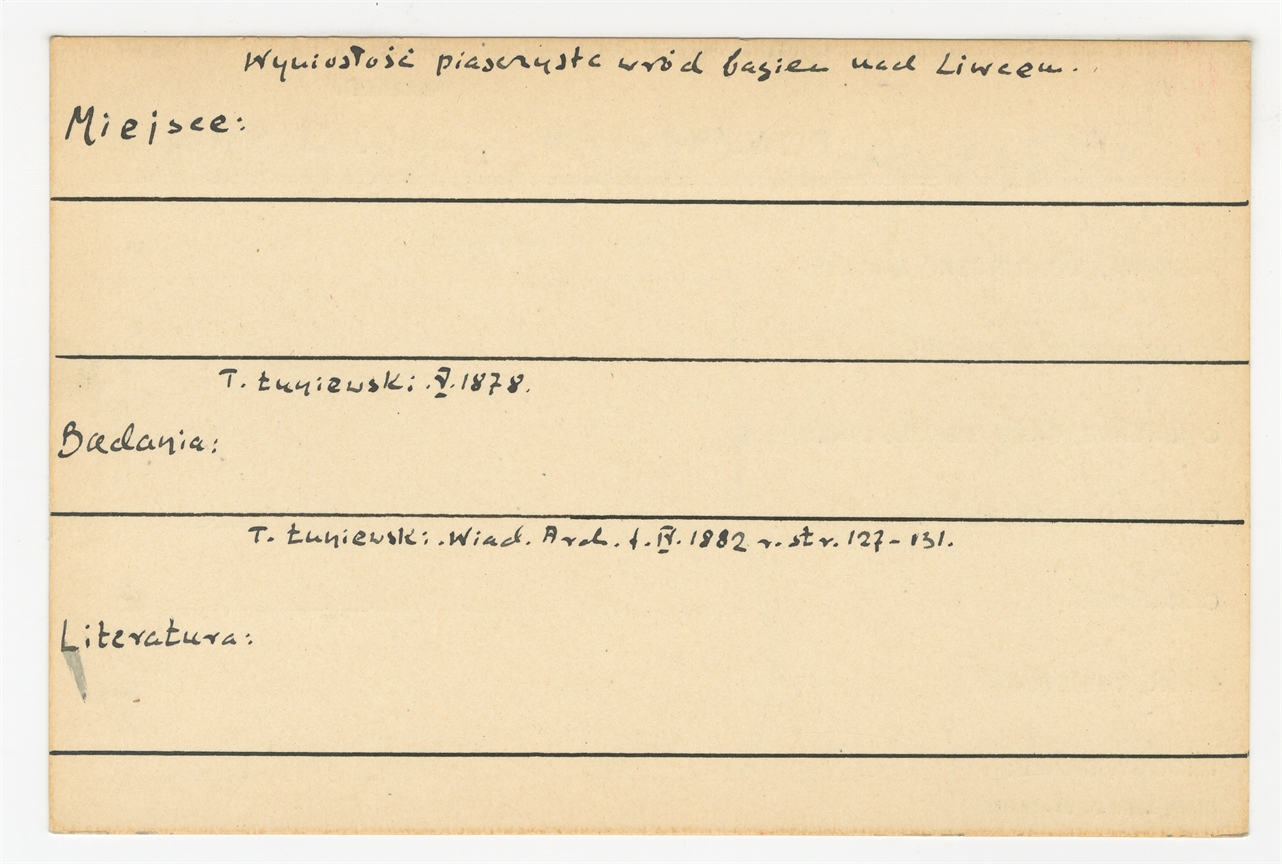 Wyniosłość piasczysta wród bagien nad Liwcem.
Miejsce:
T. Łuniewski. V. 1878.
Badania:
T. Łuniewski: Wiad. Arch. t. IV. 1882 r. str. 127-131.
Literatura: